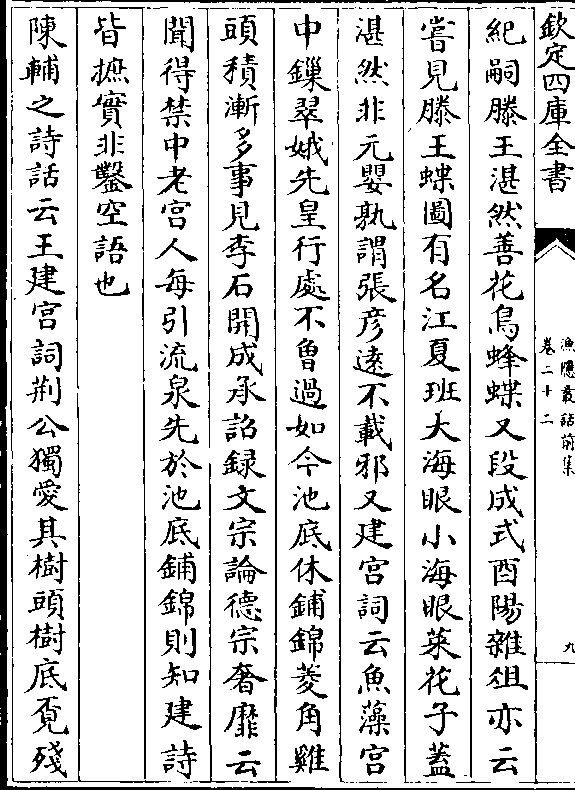 欽定四庫全書
漁隱叢話前集
卷二十二
九
紀嗣滕王湛然善花鳥蜂蝶又段成式酉陽雜俎亦云
嘗見滕王蝶圖有名江夏班大海眼小海眼菜花子蓋
湛然非元嬰孰謂張彦逺不載邪又建宫詞云魚藻宫
中鏁翠娥先皇行處不曾過如今池底休鋪錦菱角雞
頭積漸多事見李石開成承詔録文宗論德宗奢靡云
聞得禁中老宫人每引流泉先於池底鋪錦則知建詩
皆摭實非鑿空語也
陳輔之詩話云王建宫詞荆公獨愛其樹頭樹底覔殘